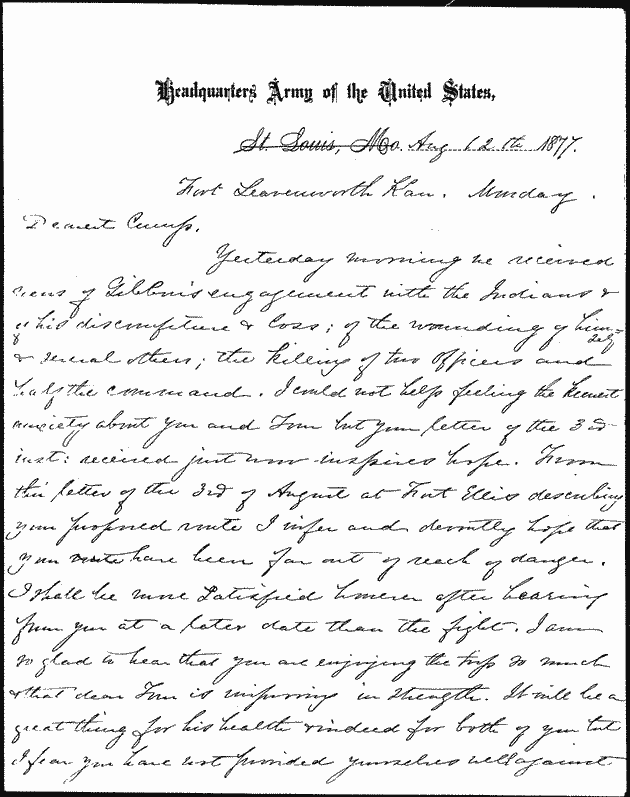 Headquarters Army of the United States,
St. Louis, Mo. Aug 12th 1877.
Fort Leavenworth Kan. Monday.
Dearest Cump.
Yesterday morning we received
news of Gibbon's engagement with the Indians &
of his discomfiture & loss; of the wounding of himself
& several others; the killing of two Officers and
half the command. I could not help feeling the keenest
anxiety about you and Tom but your letter of the 3rd
inst: received just now inspires hope. From
this letter of the 3rd of August at Fort Ellis describing
your proposed route I infer and devoutly hope that
you have been far out of reach of danger.
I shall be more satisfied however after hearing
from you at a later date than the fight. I am
so glad to hear that you are enjoying the trip so much
& that dear Tom is improving in strength. It will be a
great thing for his health & indeed for both of you but
I fear you have not provided yourselves well against